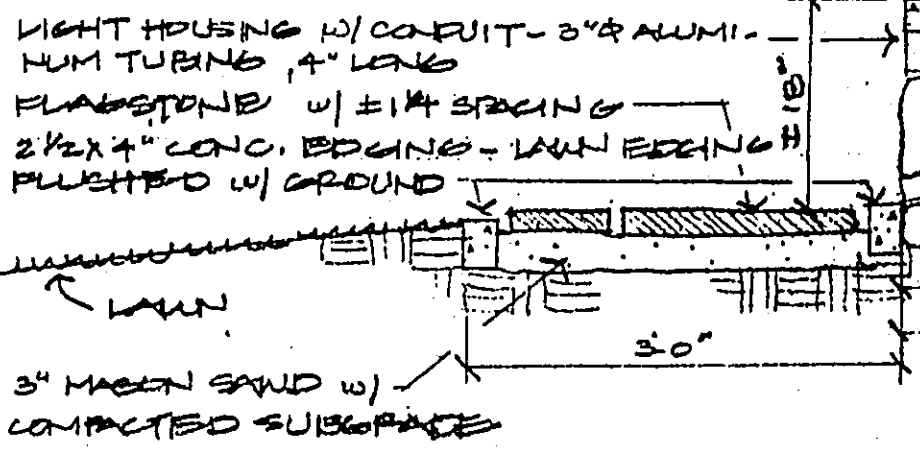 LIGHT HOUSING W/ CONDUIT - 3"Φ ALUMI-
NUM TUBING, 4" LONG
FLAGSTONE W/ ±1/4 SPACING
2 1/2 X 4" CONC. EDGING - LAWN EDGING
FLUSHED W/ GROUND
LAWN
3'-0"
3" MASON SAND W/
COMPACTED SUBGRADE